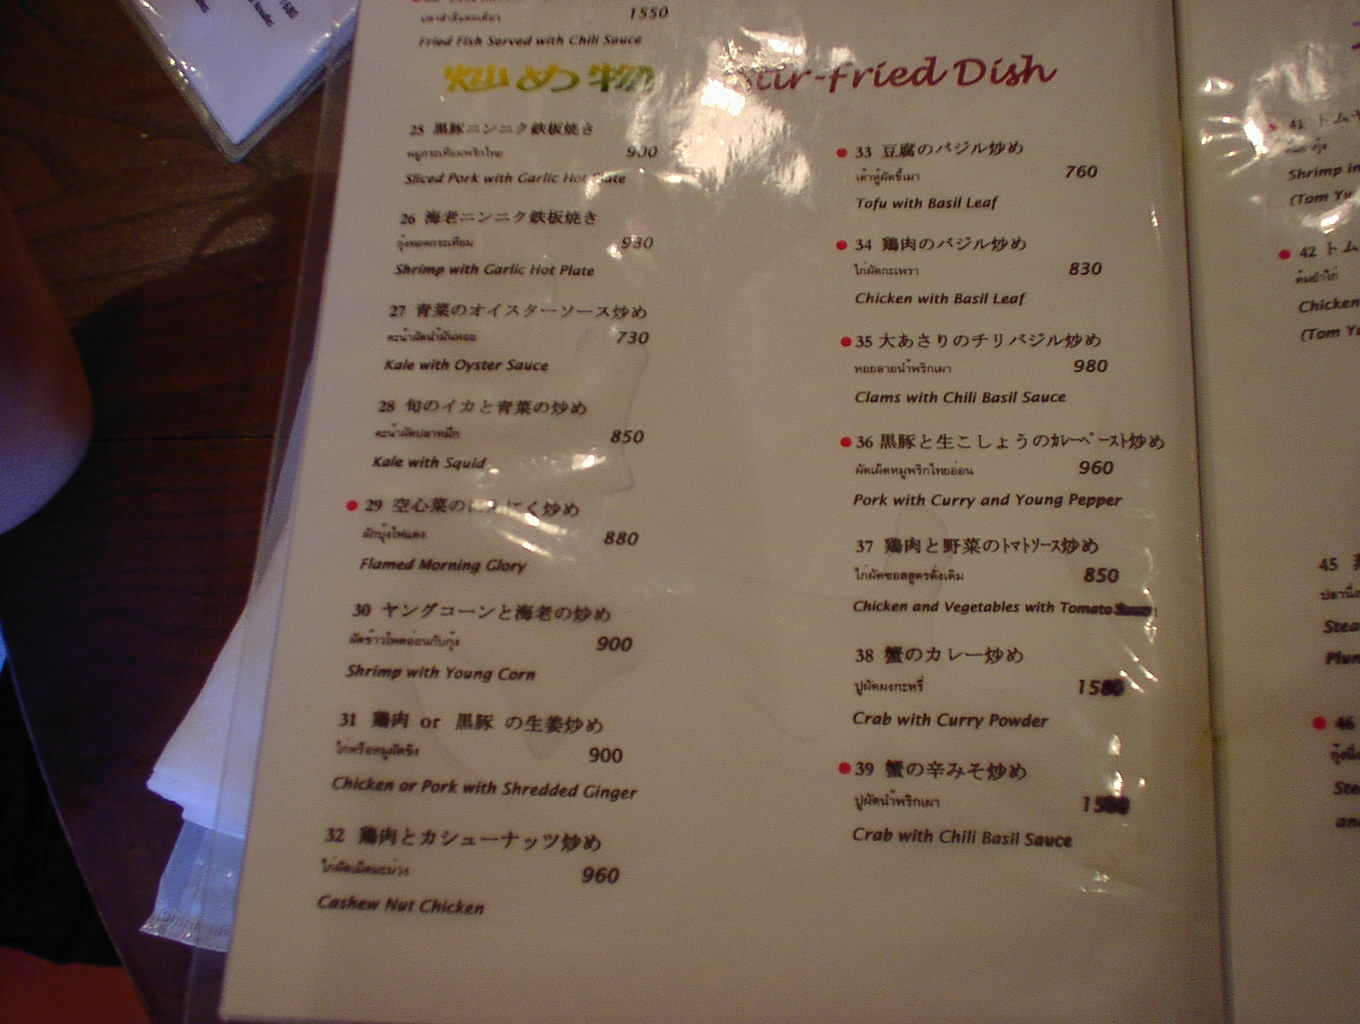 1550
Fried Fish Served with Chili Sauce
炒め物 Stir-Fried Dish
25 黒豚ニンニク鉄板焼き
หมูกระเทียมพริกไทย 900
Sliced Pork with Garlic Hot Plate
26 海老ニンニク鉄板焼き
กุ้งทอดกระเทียม 930
Shrimp with Garlic Hot Plate
27 青菜のオイスターソース炒め
คะน้าผัดน้ำมันหอย 730
Kale with Oyster Sauce
28 旬のイカと青菜の炒め
คะน้าผัดปลาหมึก 850
Kale with Squid
29 空心菜のにんにく炒め
ผักบุ้งไฟแดง 880
Flamed Morning Glory
30 ヤングコーンと海老の炒め
ผัดข้าวโพดอ่อนกับกุ้ง 900
Shrimp with Young Corn
31 鶏肉 or 黒豚 の生姜炒め
ไก่หรือหมูผัดขิง 900
Chicken or Pork with Shredded Ginger
32 鶏肉とカシューナッツ炒め
ไก่ผัดเม็ดมะม่วง 960
Cashew Nut Chicken
33 豆腐のバジル炒め
เต้าหู้ผัดขี้เมา 760
Tofu with Basil Leaf
34 鶏肉のバジル炒め
ไก่ผัดกะเพรา 830
Chicken with Basil Leaf
35 大あさりのチリバジル炒め
หอยลายน้ำพริกเผา 980
Clams with Chili Basil Sauce
36 黒豚と生こしょうのカレーペースト炒め
ผัดเผ็ดหมูพริกไทยอ่อน 960
Pork with Curry and Young Pepper
37 鶏肉と野菜のトマトソース炒め
ไก่ผัดซอสสูตรดั่งเดิม 850
Chicken and Vegetables with Tomato Sauce
38 蟹のカレー炒め
ปูผัดผงกะหรี่ 1580
Crab with Curry Powder
39 蟹の辛みそ炒め
ปูผัดน้ำพริกเผา 1580
Crab with Chili Basil Sauce
41 トム
Shrimp in
(Tom Yu
42 トム
ต้มยำไก่
Chicken
(Tom Yu
45
ปลานึ่ง
Stea
Plum
46
Ste
an